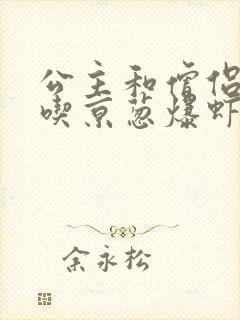 公主和僧侣
喫京葱爆虾
余永松